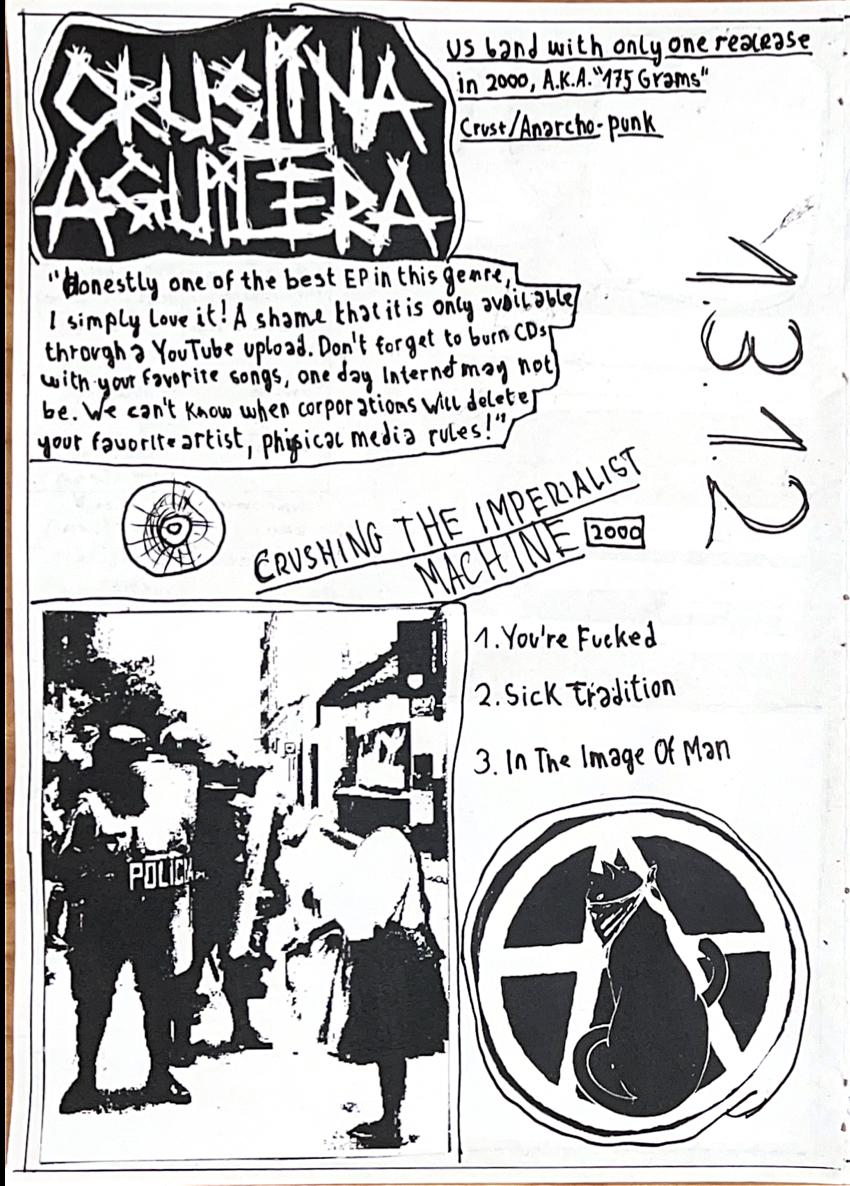 CRUSTINA
AGUILERA
US band with only one realease
in 2000, A.K.A. "175 Grams"
Crust/Anarcho-punk
"Honestly one of the best EP in this genre,
I simply love it! A shame that it is only available
through a YouTube upload. Don't forget to burn CDs
with your favorite songs, one day Internet may not
be. We can't know when corporations will delete
your favorite artist, physical media rules!"
1.312
CRUSHING THE IMPERIALIST
MACHINE 2000
1. You're Fucked
2. Sick Tradition
3. In The Image Of Man
POLICIA